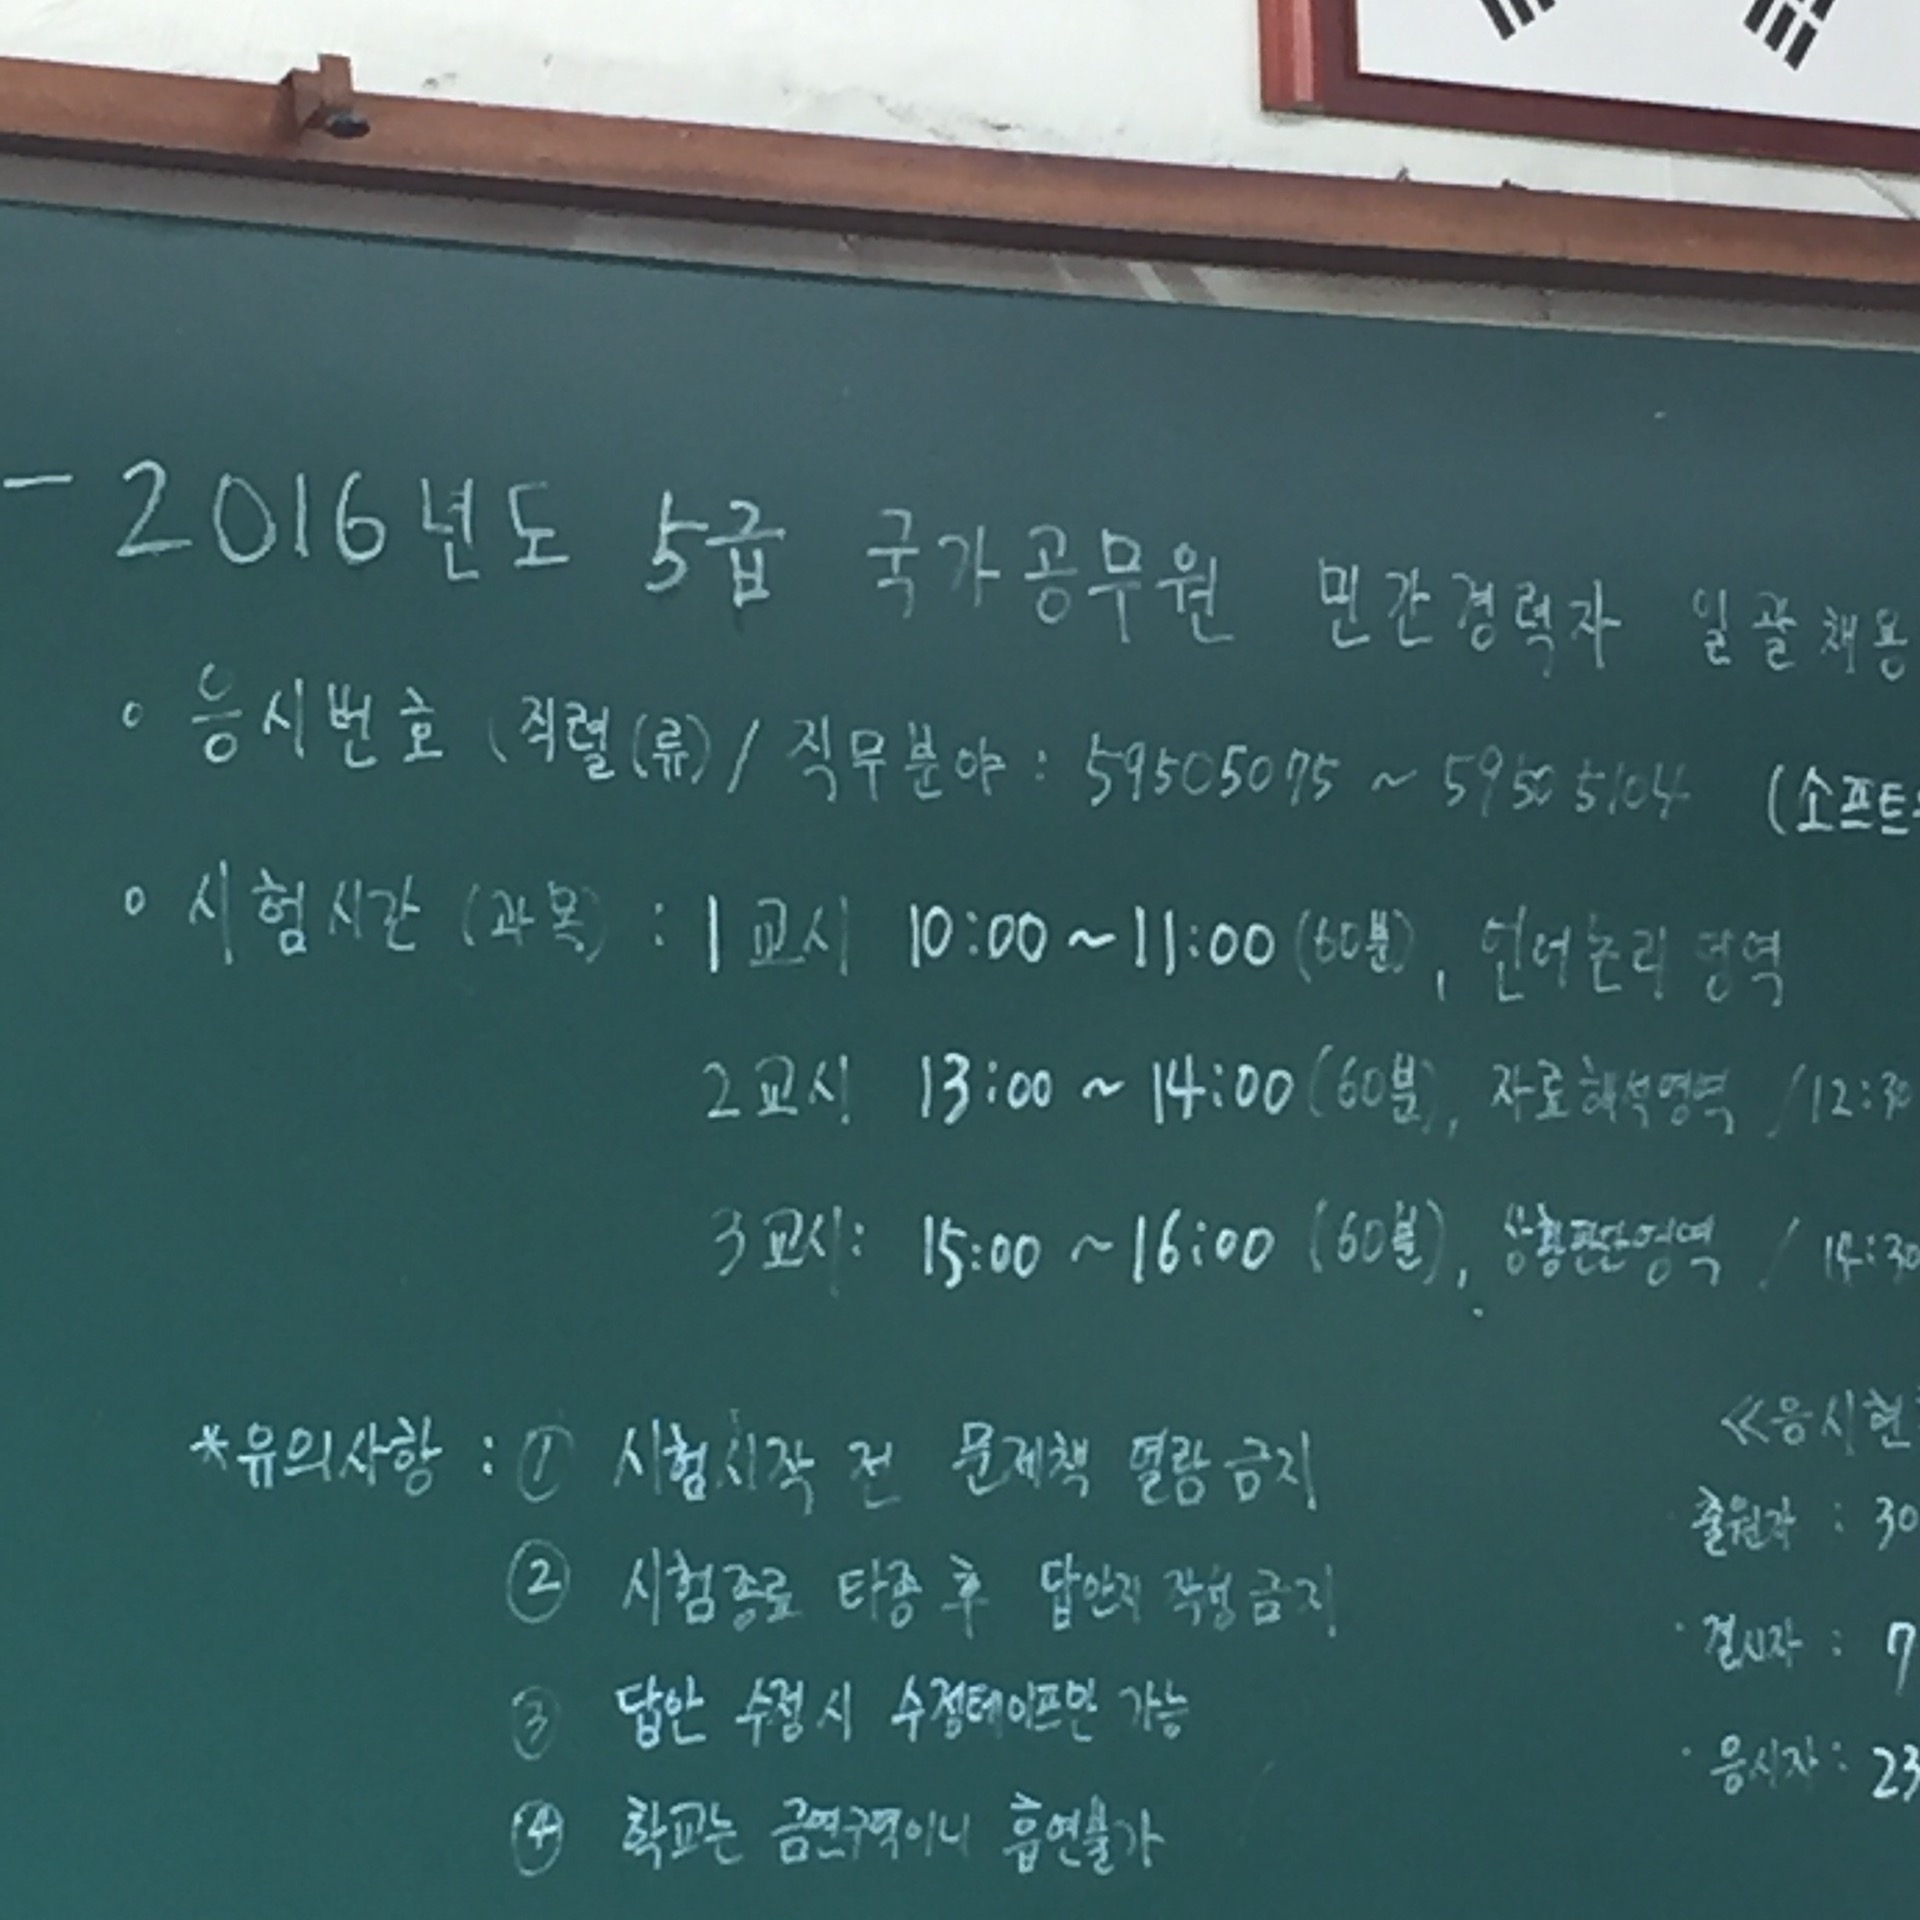 - 2016년도 5급 국가공무원 민간경력자 일괄채용
◦ 응시번호 (직렬(류) / 직무분야 : 59505075 ~ 59505104 (소프트
◦ 시험시간 (과목) : 1교시 10:00 ~ 11:00 (60분), 언어논리영역
2교시 13:00 ~ 14:00 (60분), 자료해석영역 / 12:30
3교시: 15:00 ~ 16:00 (60분), 상황판단영역 / 14:30
*유의사항 : ① 시험시작 전 문제책 열람금지
② 시험종료 타종 후 답안지 작성금지
③ 답안 수정시 수정테이프만 가능
④ 학교는 금연구역이니 흡연불가
≪응시현
출원자 : 30
· 결시자 : 7
· 응시자 : 23